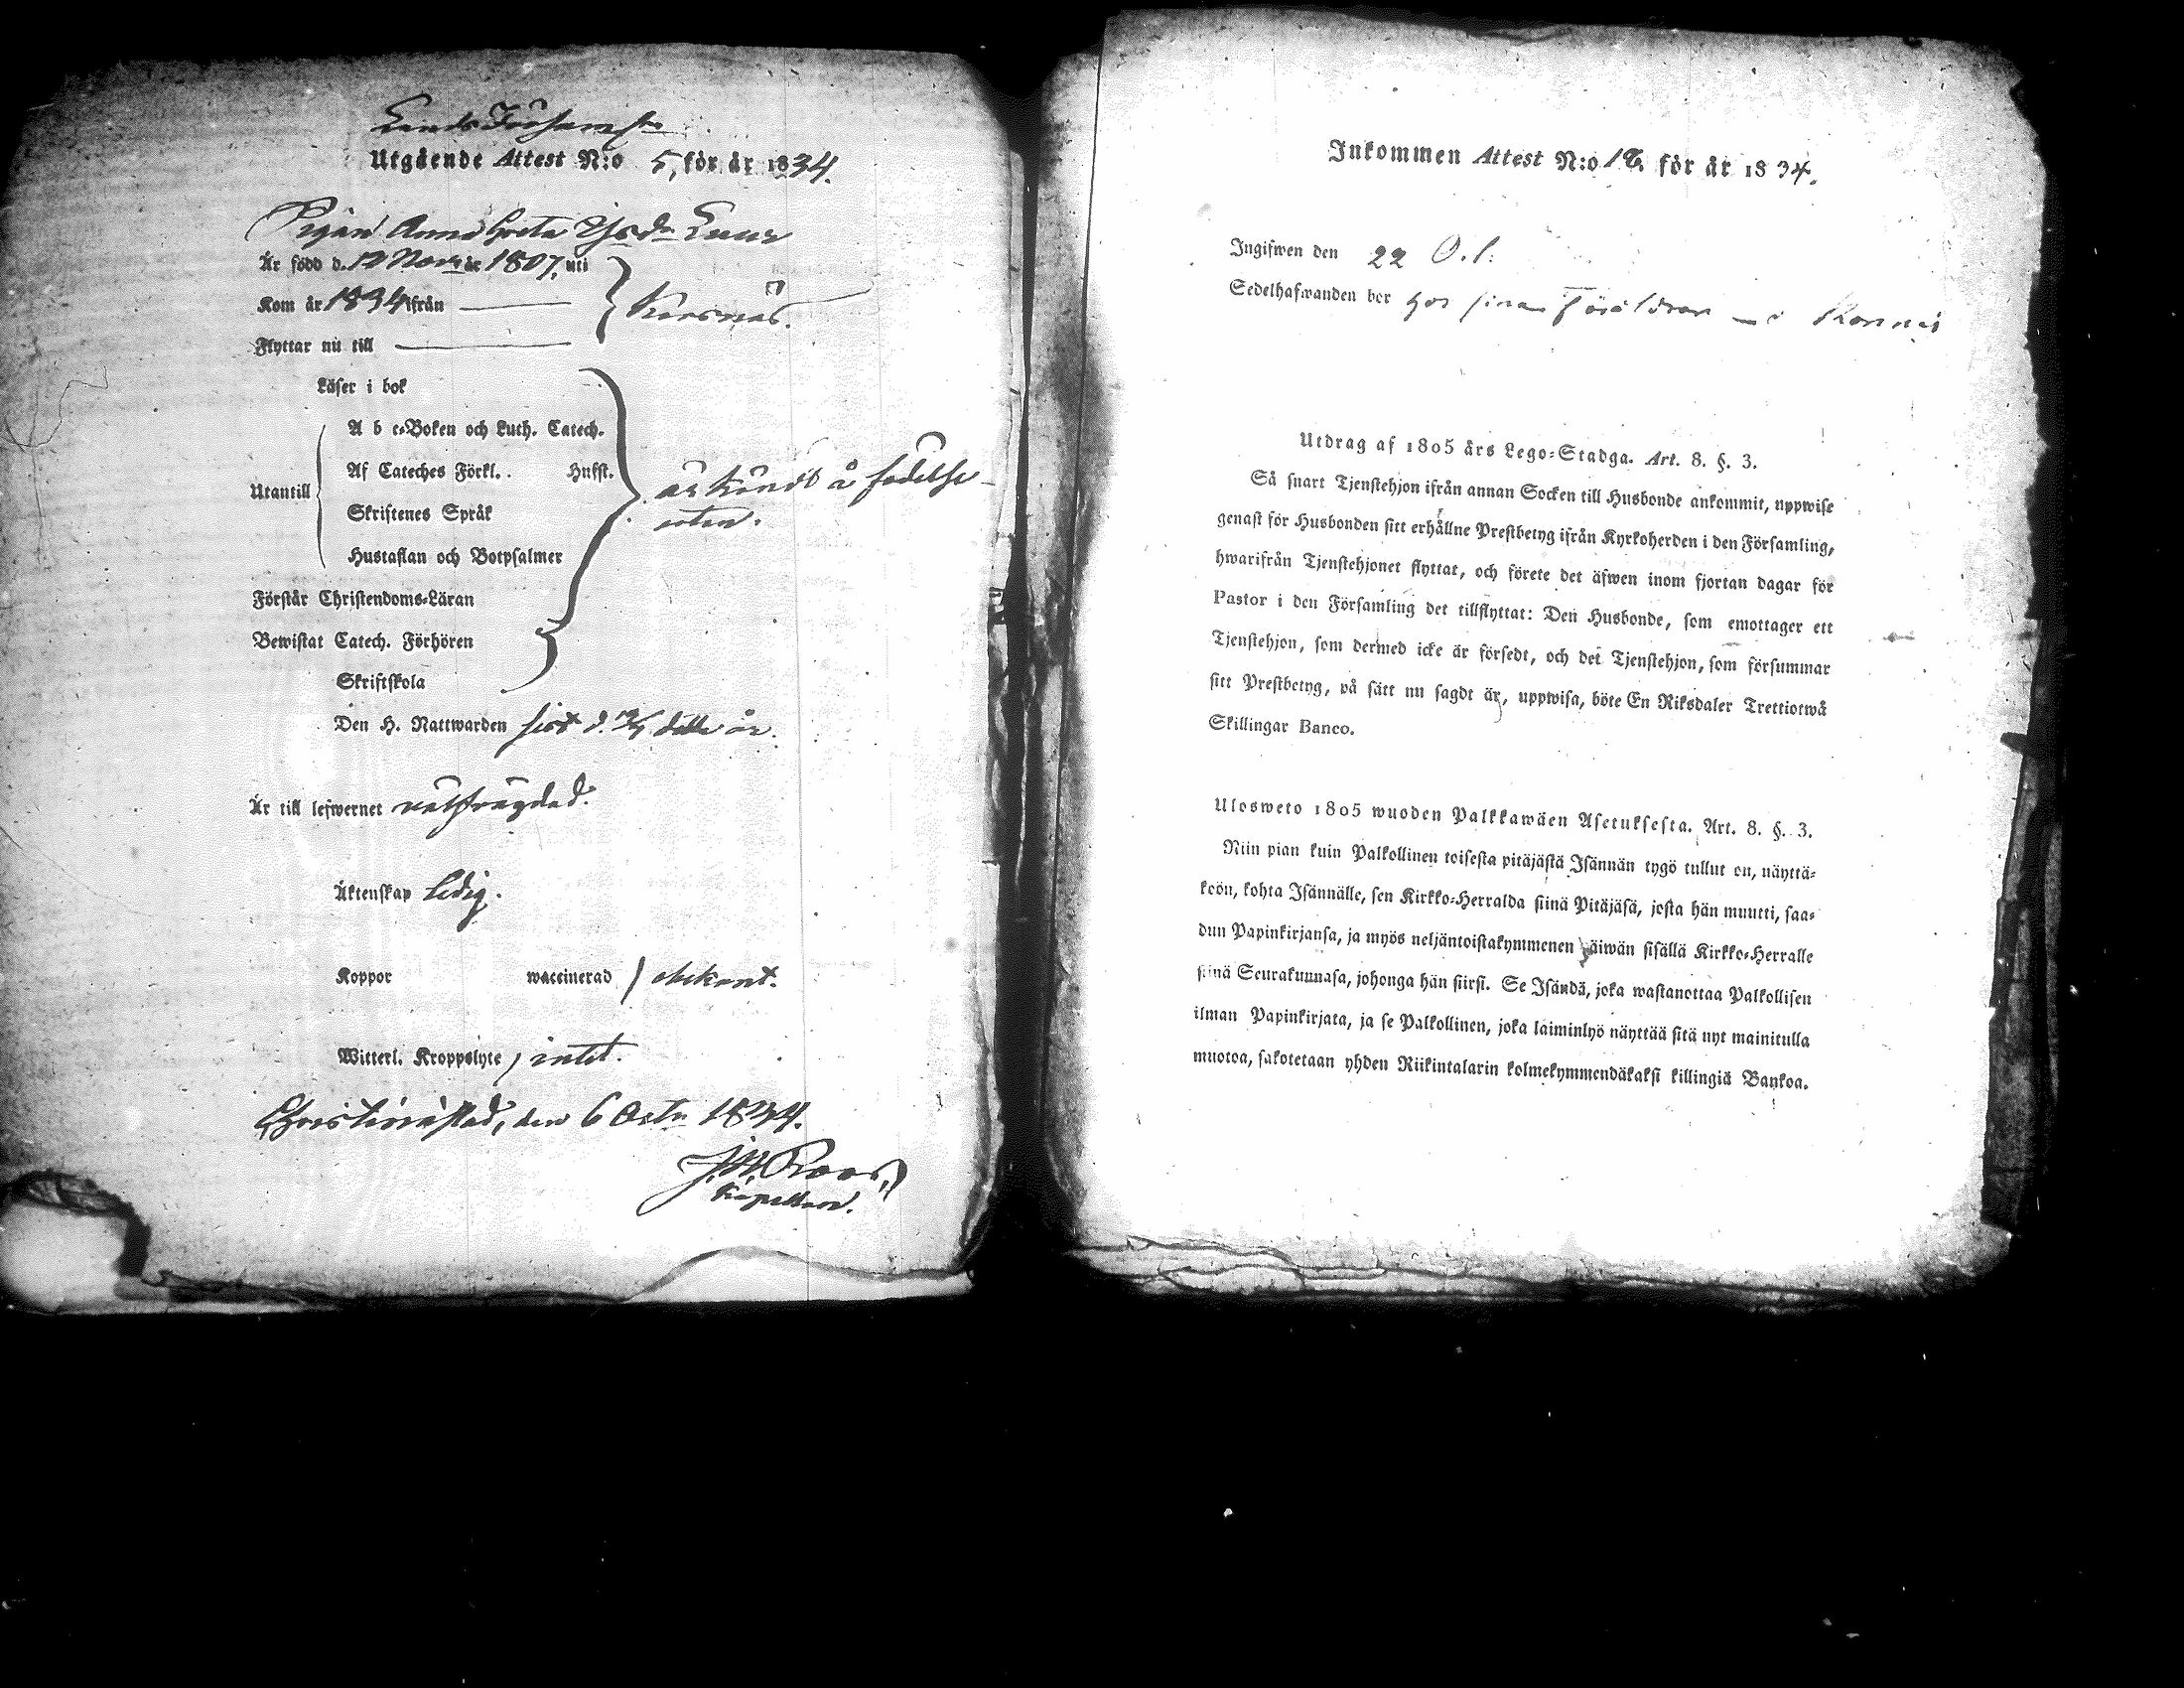 Lands Församl:s
Utgående Attest N:o 5, för år 1834.
Pigan Anna Greta
Är född d. 12 Nov. år 1807, uti
Kom år 1834 ifrån
Korsnäs.
Flyttar nu till
Läser i bok
A b c-Boken och Luth. Catech.
Af Cateches Förkl. . Husst.
Utantill
är känd å födelse-
orten.
Skriftenes Språk
Hustaflan och Botpsalmer
Förstår Christendoms-Läran
Bewistat Catech. Förhören
Skriftskola
Den H. Nattwarden sist d. detta år.
Är till lefwernet välfrägdad.
Äktenskap ledig.
Koppor waccinerad obekant.
Witterl. Kroppslyte, intet.
Christinæstad, den 6 Octr 1834.
Roos,
Kapellan.
Inkommen Attest N:o 18 för år 1834.
Ingifwen den 22 O.
Sedelhafwanden bor hos sina Föräldrar i Korsnäs
Utdrag af 1805 års Lego-Stadga. Art. 8. §. 3.
Så snart Tjenstehjon ifrån annan Socken till Husbonde ankommit, uppwise
genast för Husbonden sitt erhållne Prestbetyg ifrån Kyrkoherden i den Församling,
hwarifrån Tjenstehjonet flyttat, och förete det äfwen inom fjortan dagar för
Pastor i den Församling det tillflyttat: Den Husbonde, som emottager ett
Tjenstehjon, som dermed icke är försedt, och det Tjenstehjon, som försummar
sitt Prestbetyg, på sätt nu sagdt är, uppwisa, böte En Riksdaler Trettiotwå
Skillingar Banco.
Ulosweto 1805 wuoden Palkkawäen Asetuksesta. Art. 8. §. 3.
Niin pian kuin Palkollinen toisesta pitäjästä Isännän tygö tullut on, näyttä-
köön, kohta Isännälle, sen Kirkko-Herralda siinä Pitäjäsä, josta hän muutti, saa-
dun Papinkirjansa, ja myös neljäntoistakymmenen päiwän sisällä Kirkko-Herralle
siinä Seurakunnasa, johonga hän siirsi. Se Isändä, joka wastanottaa Palkollisen
ilman Papinkirjata, ja se Palkollinen, joka laiminlyö näyttää sitä nyt mainitulla
muotoa, sakotetaan yhden Riikintalarin kolmekymmendäkaksi killingiä Bankoa.